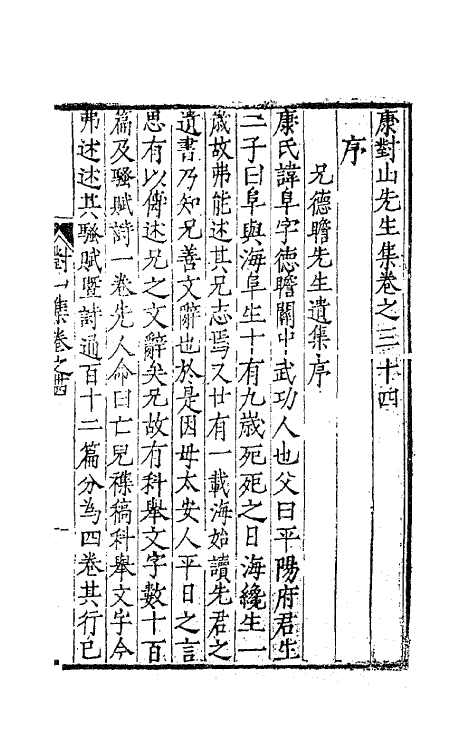 康對山先生集卷之三十四
序
兄德瞻先生遺集序
康氏諱阜字德瞻關中武功人也父曰平陽府君生
二子曰阜與海阜生十有九歳死死之日海纔生一
歳故弗能述其兄志焉又廿有一載海始讀先君之
遺書乃知兄善文辭也於是因母太安人平日之言
思有以傳述兄之文辭矣兄故有科舉文字數十百
篇及騷賦詩一卷先人命曰亡兒襍稿科舉文字今
弗述述其騷賦暨詩通百十二篇分為四卷其行已
集卷之